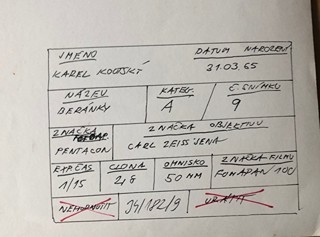 JMÉNO DATUM NAROZENÍ
KAREL 21.03.65
NÁZEV KATEG. Č. SNÍMKU
BERÁNKY A 9
ZNAČKA ZNAČKA OBJEKTIVU
PENTACON CARL ZEISS JENA
EXP. ČAS CLONA OHNISKO ZNAČKA FILMU
1/15 50 MM FOMAPAN 100
NEHODNOTIT 34/182/9 VRÁTIT